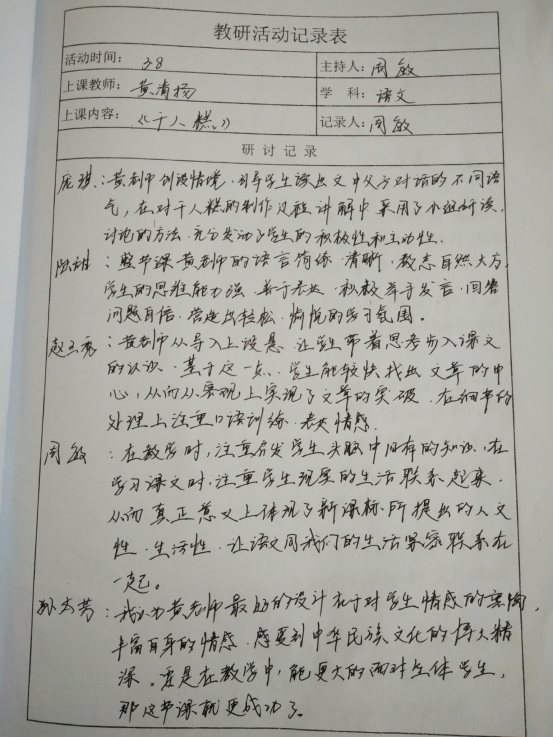 教研活动记录表
活动时间： 3.8 主持人：周敏
上课教师： 黄清扬 学 科：语文
上课内容： 《千人糕》 记录人：周敏
研 讨 记 录
庞琪：黄老师创设情境，引导学生读出文中父子对话的不同语
气，在对千人糕的制作过程讲解中采用了小组研读、
讨论的方法，充分发动了学生的积极性和主动性。
：整节课黄老师的语言简练、清晰，教态自然大方，
学生的思维能力强，善于表达，积极举手发言，回答
问题自信，营造出轻松、愉悦的学习氛围。
赵玉秀：黄老师从导入上设悬，让学生带着思考步入课文
的认识，基于这一点，学生能较快找出文章的中
心，从而从客观上实现了文章的突破，在细节的
处理上注重口语训练，表达情感。
周敏：在教学时，注重启发学生头脑中旧有的知识，在
学习课文时，注重学生现实的生活联系起来，
从而真正意义上体现了新课标所提出的人文
性、生活性，让语文同我们的生活紧密联系在
一起。
孙杰芳：我认为黄老师最好的设计在于对学生情感的熏陶，
丰富自身的情感，感受到中华民族文化的博大精
深。若是在教学中，能更大的面对全体学生，
那这节课就更成功了。